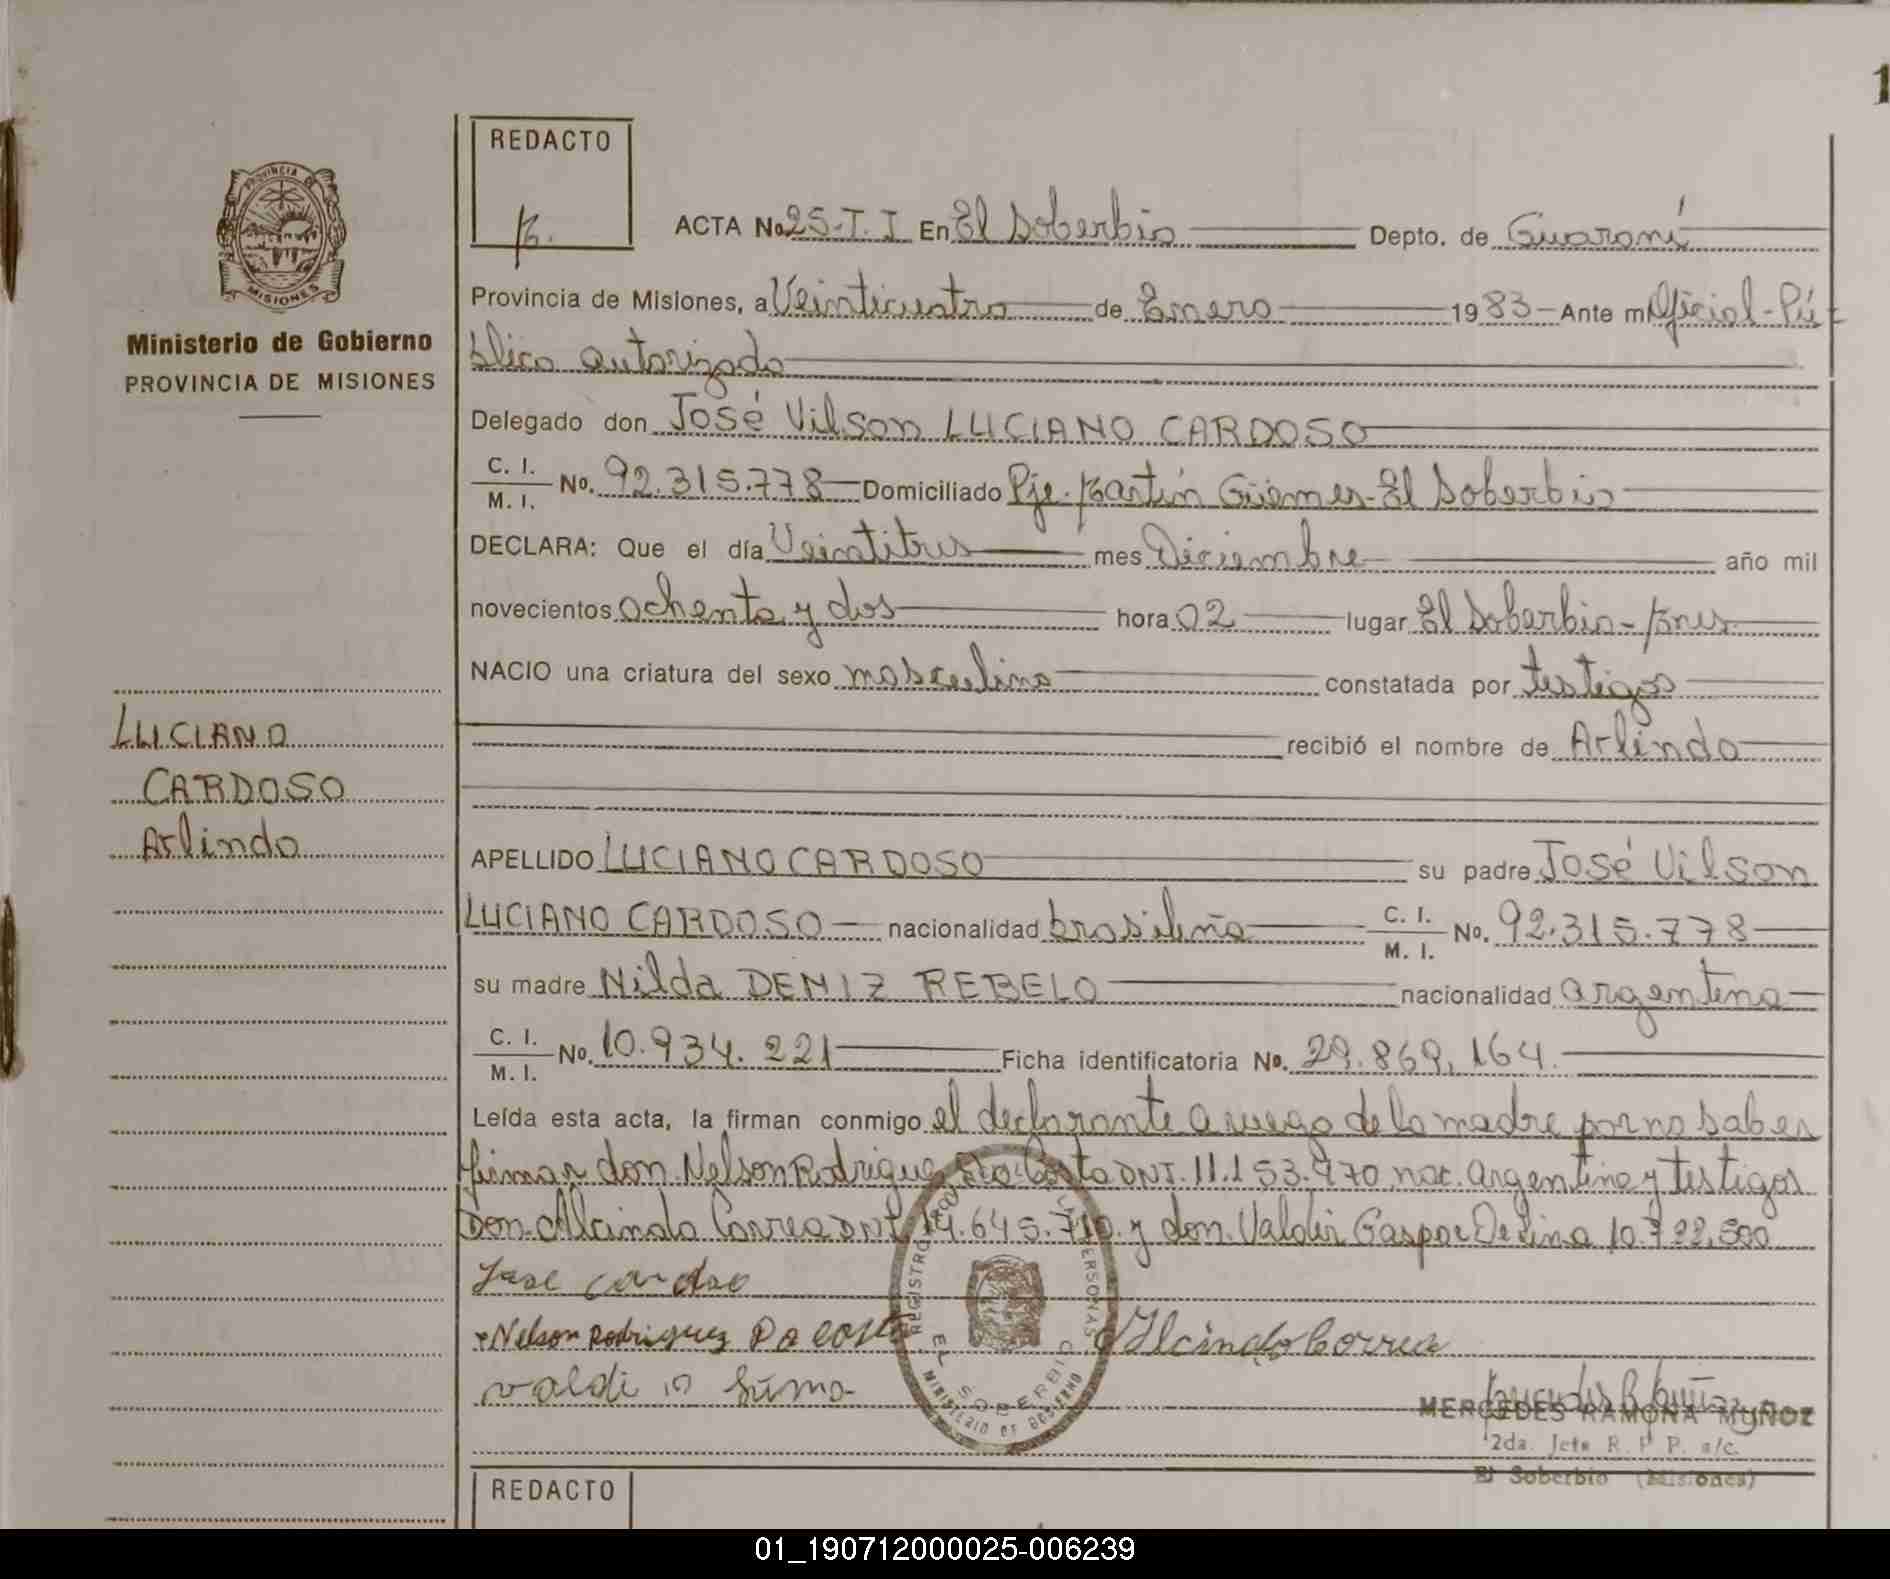 1
REDACTO
PROVINCIA DE
MISIONES
Ministerio de Gobierno
PROVINCIA DE MISIONES
ACTA No 25-T.I En El Soberbio Depto. de Guaraní
Provincia de Misiones, a Veinticuatro de Enero 1983 Ante mi Oficial-Pú-
blico autorizado
Delegado don José Vilson LUCIANO CARDOSO
C. I.
M. I. No. 92.315.778 Domiciliado Pje. Martín Güemes-El Soberbio
DECLARA: Que el día Veintitres mes Diciembre año mil
novecientos ochenta y dos hora 02 lugar El Soberbio-Mnes
NACIO una criatura del sexo masculino constatada por testigos
recibió el nombre de Arlindo
LUCIANO
CARDOSO
Arlindo
APELLIDO LUCIANO CARDOSO su padre José Vilson
LUCIANO CARDOSO nacionalidad brasileña C. I.
M. I. No. 92.315.778
su madre Nilda DENIZ REBELO nacionalidad argentina
C. I.
M. I. No. 10.934.221 Ficha identificatoria No. 29.869.164.
Leída esta acta, la firman conmigo el declarante a ruego de la madre por no saber
firmar don Nelson Rodriguez Da Costa DNI. 11.153.970 nac. argentina y testigos
Don Alcindo Correa DNI 14.645.710 y don Valdir Gaspar De Lima 10.722.500
Jose cardoso
Nelson Rodriguez Da Costa Alcindo Correa
REGISTRO PERSONAS
EL SOBERBIO
MINISTERIO DE GOBIERNO
MERCEDES RAMONA MUÑOZ
2da. Jefe R. P. P. a/c.
El Soberbio (Misiones)
REDACTO
01_190712000025-006239